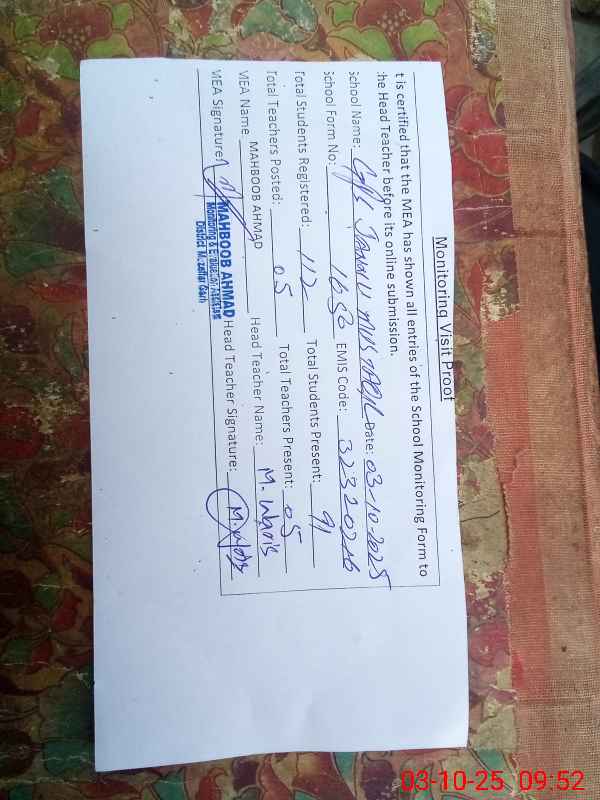 Monitoring Visit Proof
t is certified that the MEA has shown all entries of the School Monitoring Form to
he Head Teacher before its online submission.
School Name: Date: 03-10-2025
School Form No: EMIS Code:
Total Students Registered: 112 Total Students Present: 91
Total Teachers Posted: 05 Total Teachers Present: 05
MEA Name MAHBOOB AHMAD Head Teacher Name: M. Waris
MEA Signature: Head Teacher Signature:
MAHBOOB AHMAD
District
03-10-25 09:52